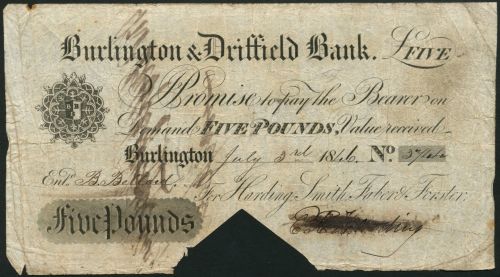 Burlington & Driffield Bank. £FIVE
I Promise to pay the Bearer on
Demand FIVE POUNDS, Value received
Burlington July 3rd 1846 No.
Entd.
For Harding, Smith, Faber & Forster,
Five Pounds